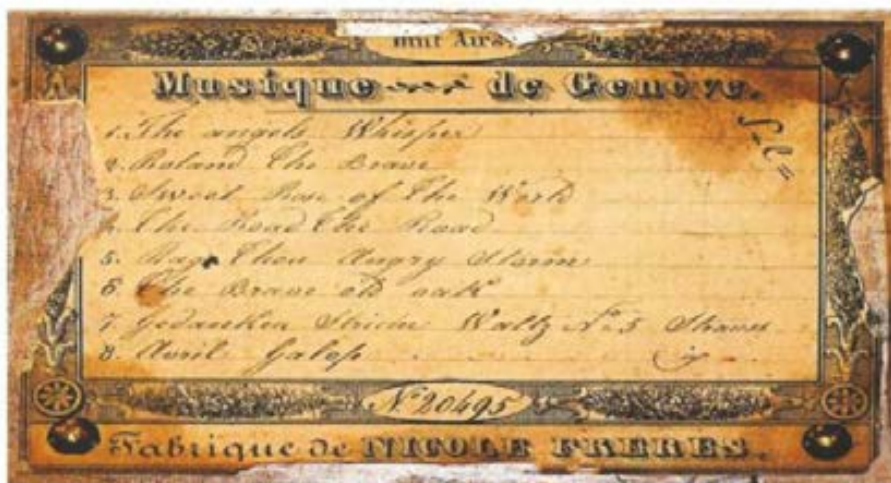 Airs.
Musique de Genève.
1. The angels Whisper
2. Roland the Brave
3. Sweet Rose of the World
4. The Road the Road
5. Rage Thou Angry Storm
6. The Brave old oak
7. Gedanken Waltz No. 5 Strauss
8. Avril Galop
No 20495
Fabrique de NICOLE FRERES.